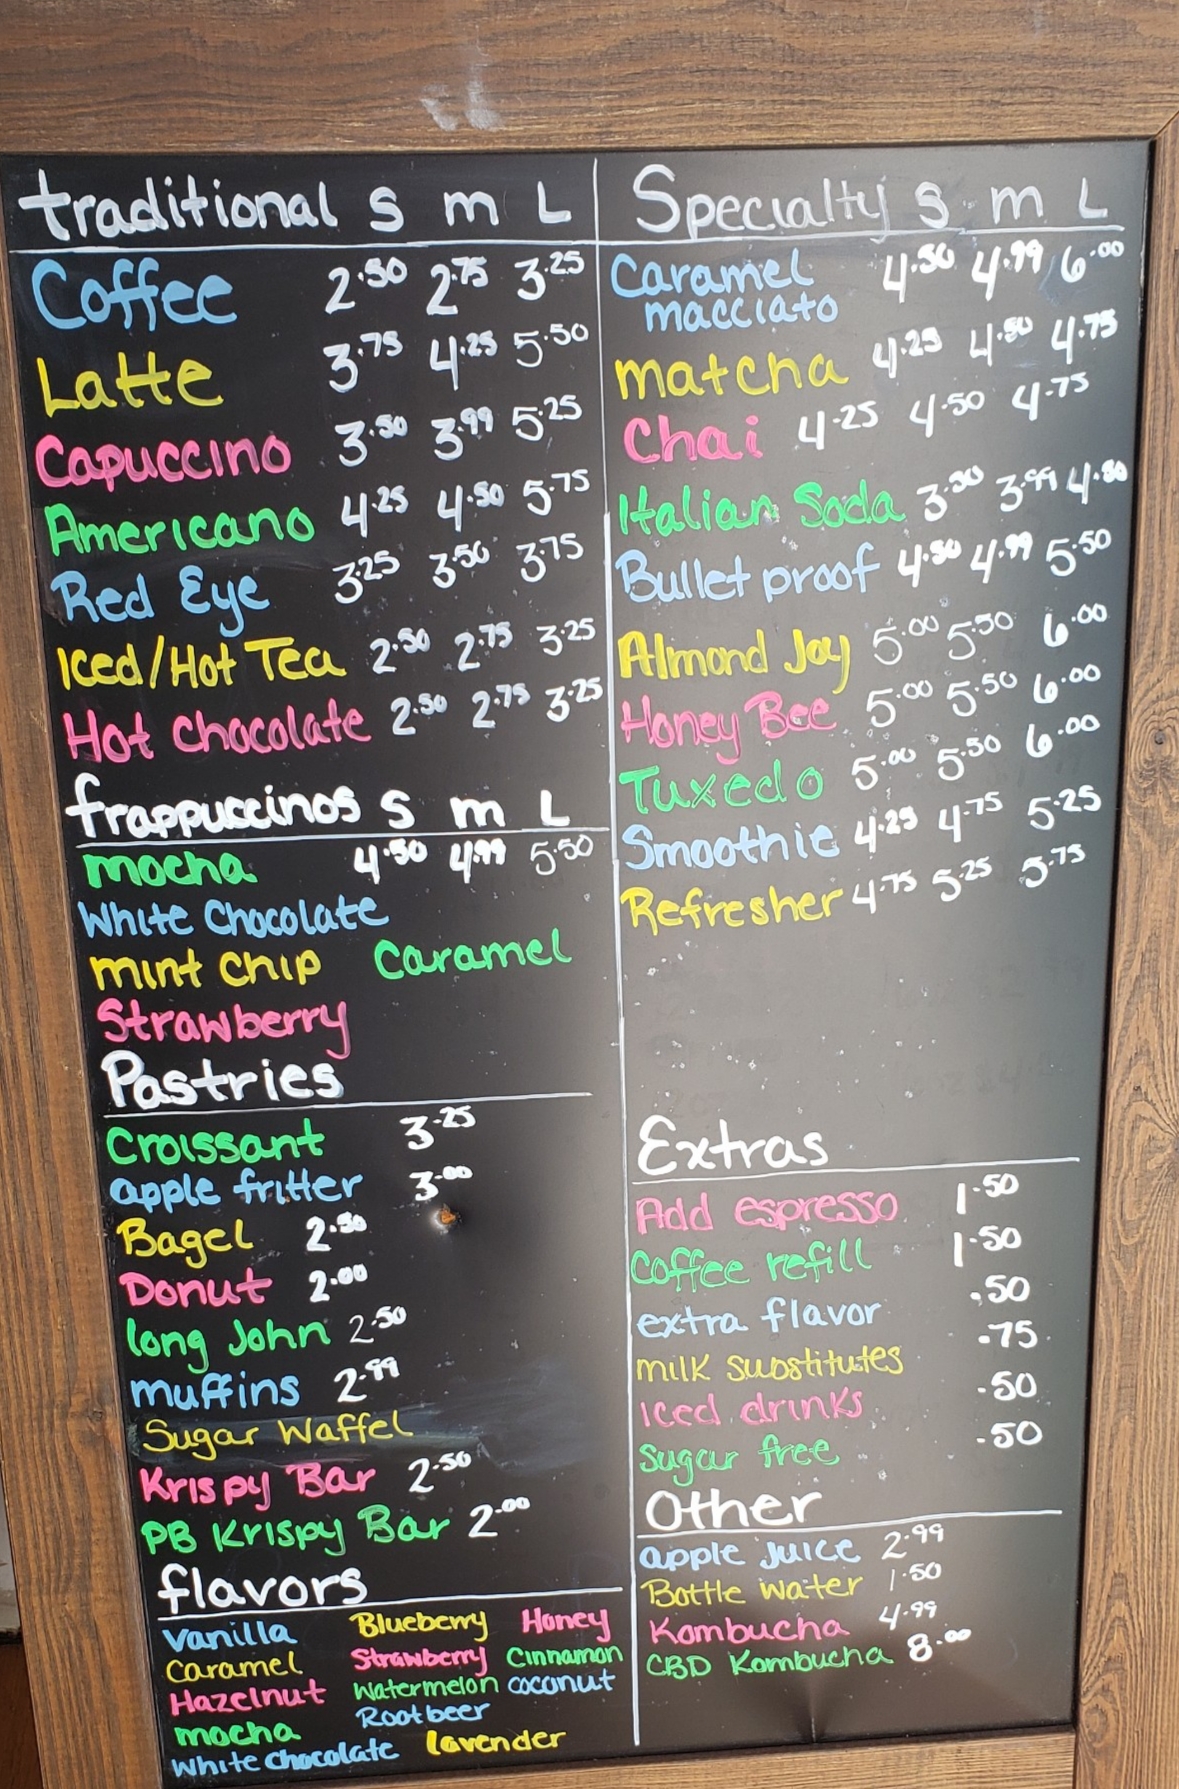 traditional S m L
Coffee 2.50 2.75 3.25
Latte 3.75 4.25 5.50
Capuccino 3.50 3.99 5.25
Americano 4.25 4.50 5.75
Red Eye 3.25 3.50 3.75
Iced/Hot Tea 2.50 2.75 3.25
Hot Chocolate 2.50 2.75 3.25
frappuccinos S m L
mocha 4.50 4.99 5.50
White Chocolate
mint chip Caramel
Strawberry
Pastries
Croissant 3.25
apple fritter 3.00
Bagel 2.50
Donut 2.00
long John 2.50
muffins 2.99
Sugar Waffel
Krispy Bar 2.50
PB Krispy Bar 2.00
flavors
Vanilla Blueberry Honey
Caramel Strawberry Cinnamon
Hazelnut Watermelon coconut
mocha Rootbeer
White chocolate lavender
Specialty S m L
Caramel 4.50 4.99 6.00
macciato
matcha 4.25 4.50 4.75
Chai 4.25 4.50 4.75
Italian Soda 3.50 3.99 4.50
Bullet proof 4.50 4.99 5.50
Almond Joy 5.00 5.50 6.00
Honey Bee 5.00 5.50 6.00
Tuxedo 5.00 5.50 6.00
Smoothie 4.25 4.75 5.25
Refresher 4.75 5.25 5.75
Extras
Add espresso 1.50
Coffee refill 1.50
extra flavor .50
milk substitutes .75
Iced drinks .50
Sugar free .50
Other
apple juice 2.99
Bottle water 1.50
Kombucha 4.99
CBD Kombucha 8.00